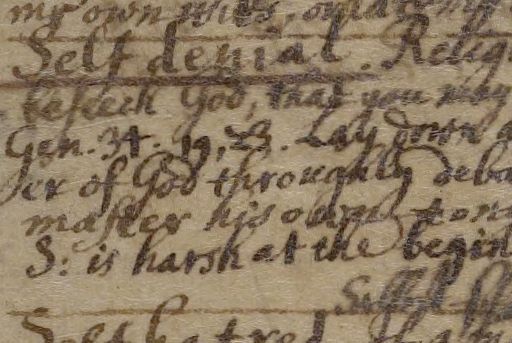 my own
Self denial. Relig
beseech God, that you may
Gen. 34. 19, 23. Lay down a
er of God throughly deba
master his own
S: is harsh at the begin
Self hatred